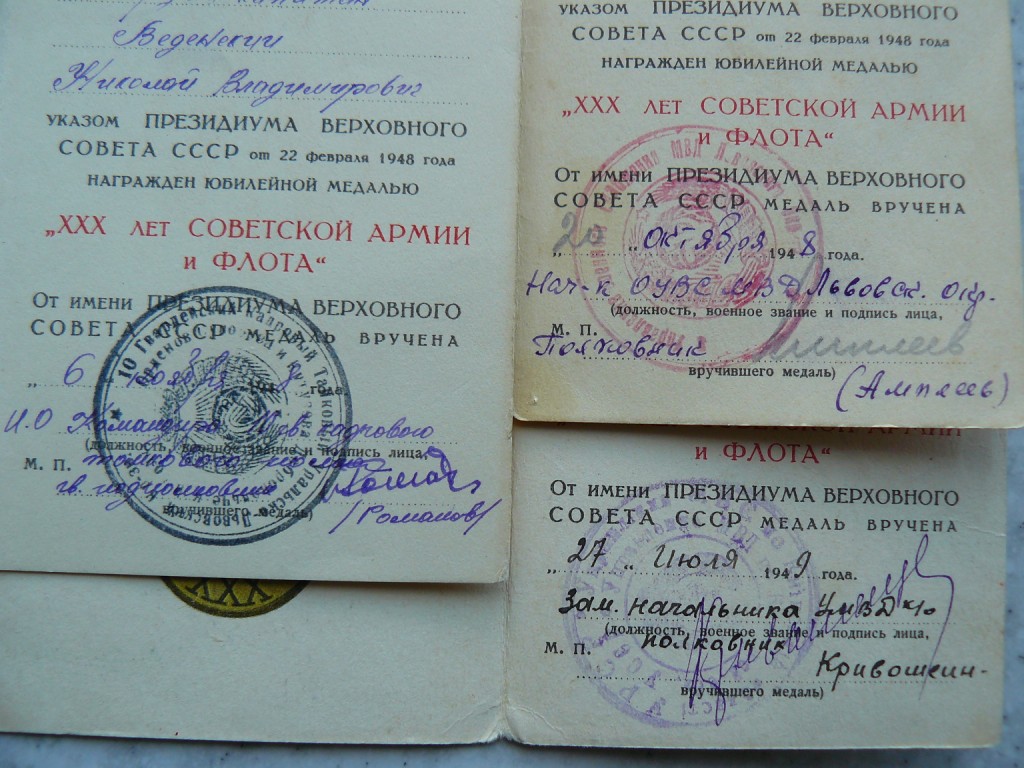 капитан
Веденский
Николай Владимирович
УКАЗОМ ПРЕЗИДИУМА ВЕРХОВНОГО
СОВЕТА СССР от 22 февраля 1948 года
НАГРАЖДЕН ЮБИЛЕЙНОЙ МЕДАЛЬЮ
„XXX ЛЕТ СОВЕТСКОЙ АРМИИ
и ФЛОТА“
От имени ПРЕЗИДИУМА ВЕРХОВНОГО
СОВЕТА СССР МЕДАЛЬ ВРУЧЕНА
„6 ноября 1948 года.
И.О Командира
(должность, военное звание и подпись лица,
М. П. танкового
гв. подполковник
вручившего медаль)
/Романов/
10 Гвардейский Кадровый
XXX
УКАЗОМ ПРЕЗИДИУМА ВЕРХОВНОГО
СОВЕТА СССР от 22 февраля 1948 года
НАГРАЖДЕН ЮБИЛЕЙНОЙ МЕДАЛЬЮ
„XXX ЛЕТ СОВЕТСКОЙ АРМИИ
и ФЛОТА“
От имени ПРЕЗИДИУМА ВЕРХОВНОГО
СОВЕТА СССР МЕДАЛЬ ВРУЧЕНА
„20„ октября 1948 года.
Нач-к ОУВС МВД Львовск. окр.
(должность, военное звание и подпись лица,
М. П.
Полковник
вручившего медаль)
(Амплеев)
и ФЛОТА“
От имени ПРЕЗИДИУМА ВЕРХОВНОГО
СОВЕТА СССР МЕДАЛЬ ВРУЧЕНА
„27„ Июля 1949 года.
Зам. начальника УМВД
(должность, военное звание и подпись лица,
М. П. полковник
Кривошеин-
вручившего медаль)